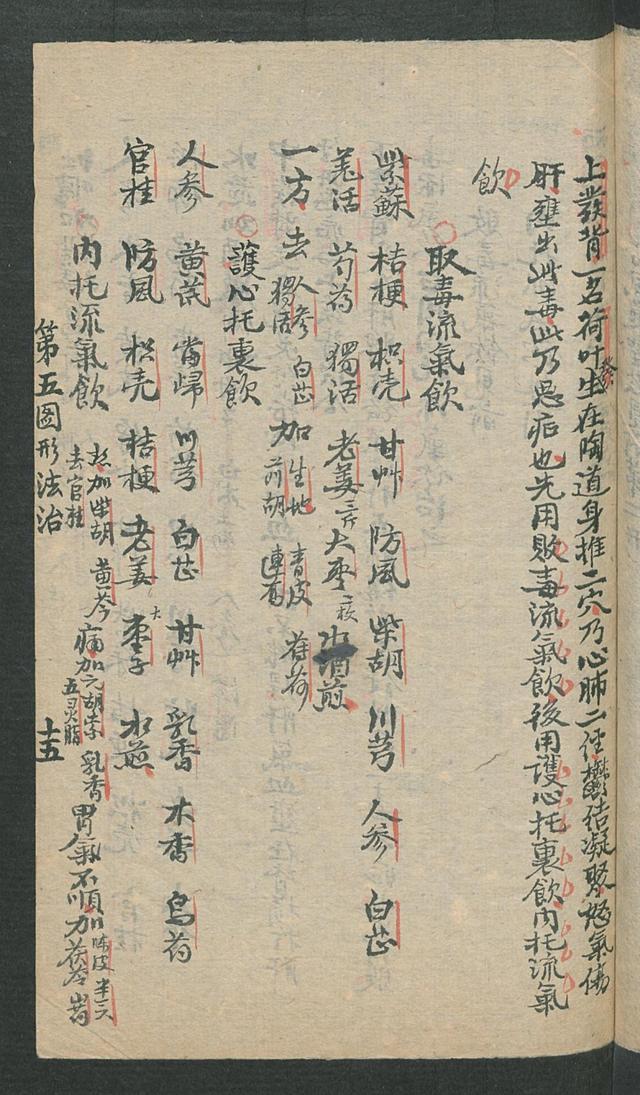 上發背一名荷叶發生在陶道身推二穴乃心肺二經鬱结凝聚怒氣傷
肝壅出此毒此乃惡症也先用敗毒流氣飲後用護心托裏飲内托流氣
飲
取毒流氣飲
紫蘇 桔梗 枳壳 甘艸 防風 柴胡 川芎 人參 白芷
羌活 芍药 獨活 老姜二片 大枣二枚 水酒煎
一方去人參 獨活 白芷 加生地 前胡 青皮 連翹 荷
護心托裏飲
人參 黄芪 當歸 川芎 白芷 甘艸 乳香 木香 乌药
官桂 防風 枳壳 桔梗 老姜 大枣子 水煎
内托流氣飲 加柴胡 去官桂 黄芩 痛加元胡索 五灵脂 乳香 胃氣不順加陈皮 半夏 茯苓
第五图形法治 十五